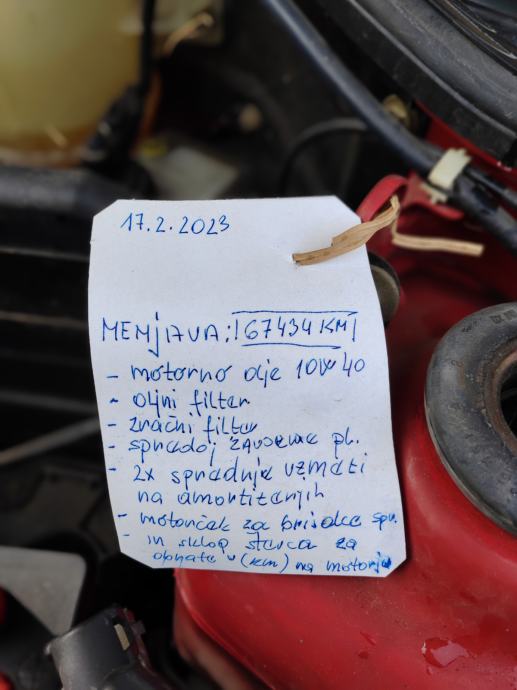 17.2.2023
MEMjAVA: 67434 KM
- motorno olje 10W40
- oljni filter
- zračni filter
- spradaj zavorne pl.
- 2x sprednje vzmeti
na amortizarjih
- motorček za brisalce spr.
- in sklop števca za
obrate v (km) na motorju